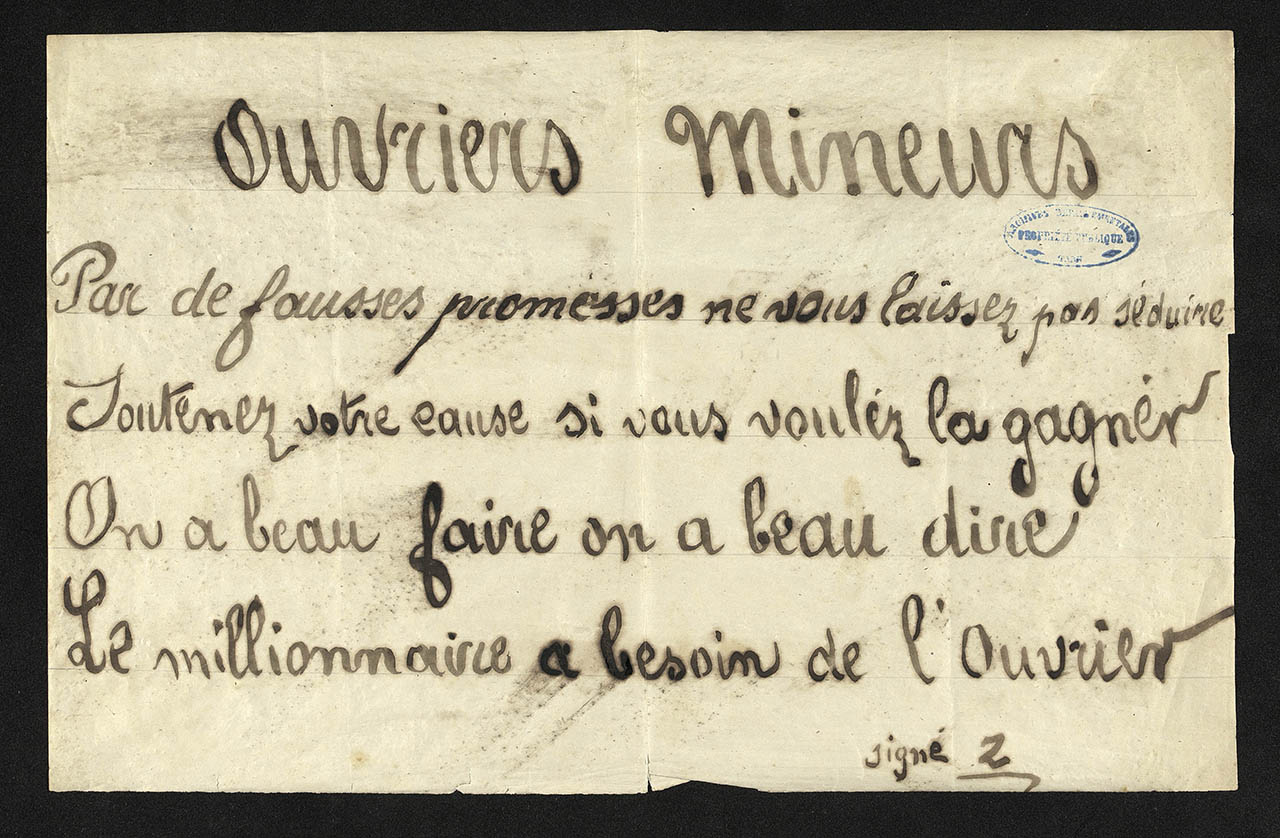 Ouvriers Mineurs
ARCHIVES DÉPARTEMENTALES
PROPRIÉTÉ PUBLIQUE
TARN
Par de fausses promésses ne vous laissez pas séduire
Souténez votre cause si vous vouléz la gagnér
On a beau faire on a beau dire
Le millionnaire a besoin de l'Ouvrier
signé Z